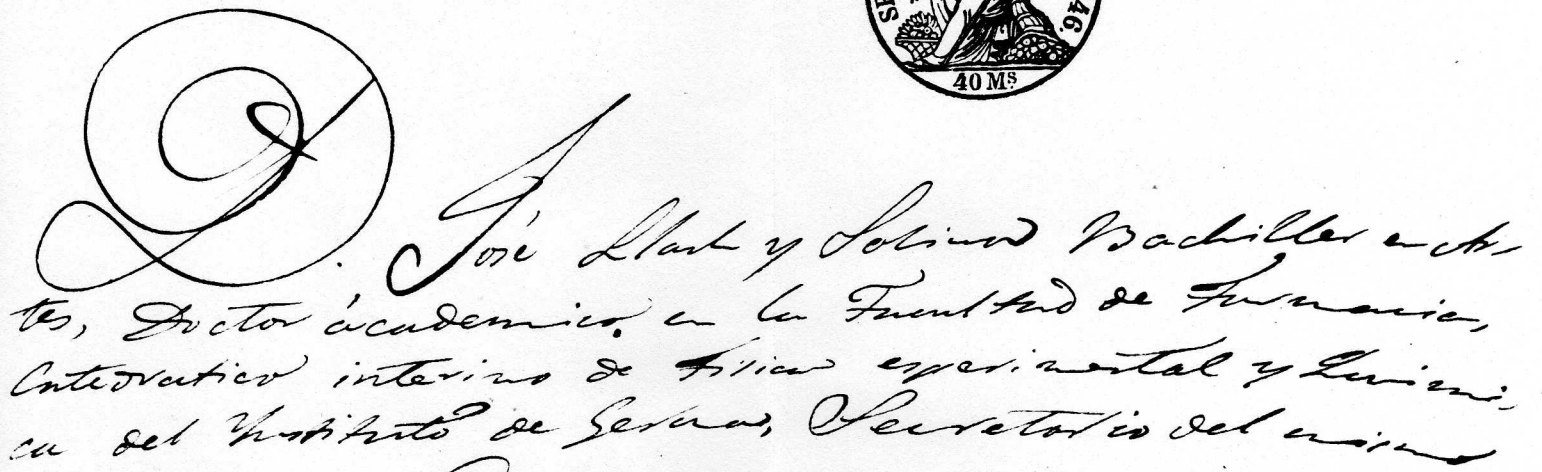 46.
40 Ms.
D. José Llach y Soliva Bachiller en Ar-
tes, Doctor académico, en la Facultad de Farmacia,
Catedratico interino de Fisica experimental y Quimi-
ca del Instituto de Gerona, Secretario del mismo